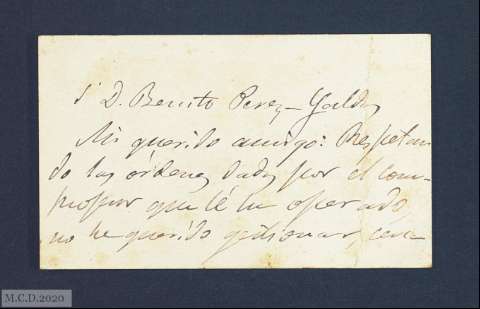 S D. Benito Perez-Galdós
Mi querido amigo: Respetan
do las órdenes dadas por el com-
profesor que lé ha operado
no he querido gestionar, cerca
M.C.D.2020